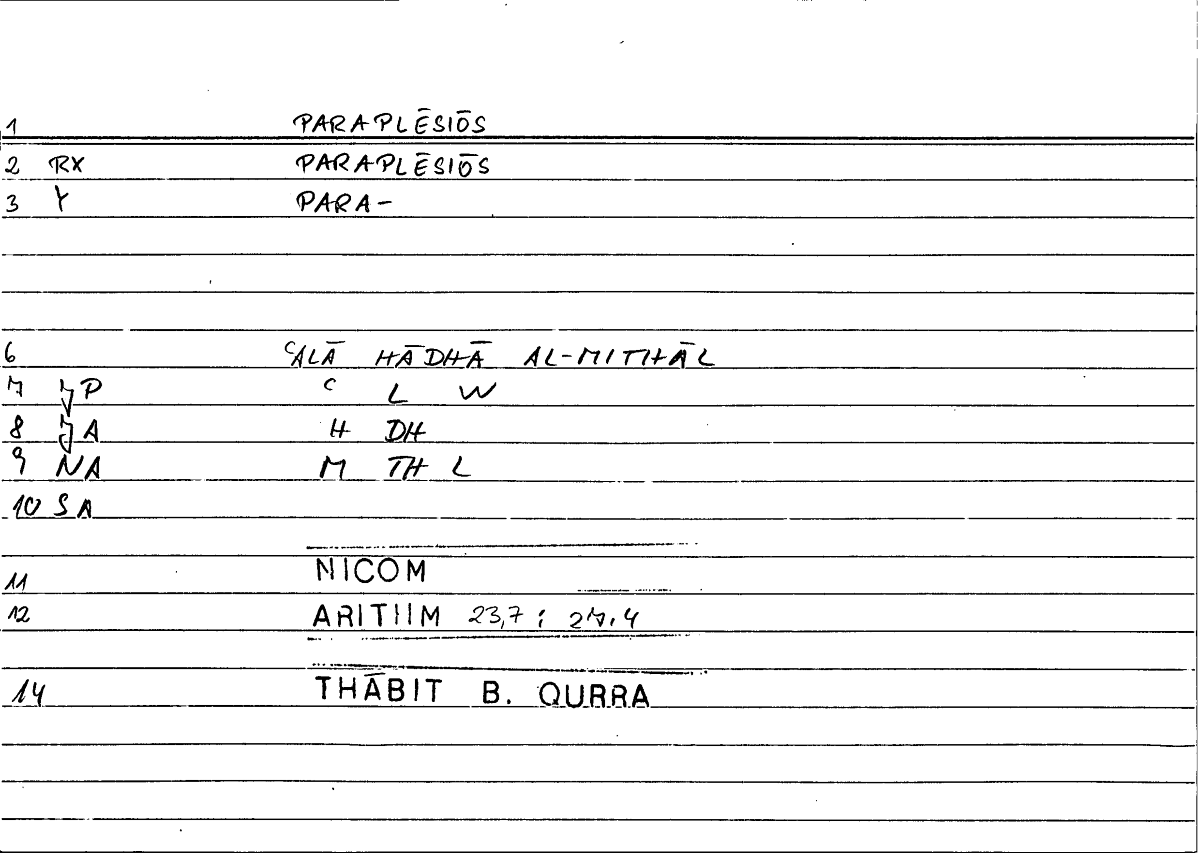 1 PARAPLĒSIŌS
2 RX PARAPLĒSIŌS
3 Y PARA-
6 ʿALĀ HĀDHĀ AL-MITHĀL
7 JP ʿ L W
8 JA H DH
9 NA M TH L
10 SA
11 NICOM
12 ARITHM 23,7 ; 27.4
14 THĀBIT B. QURRA